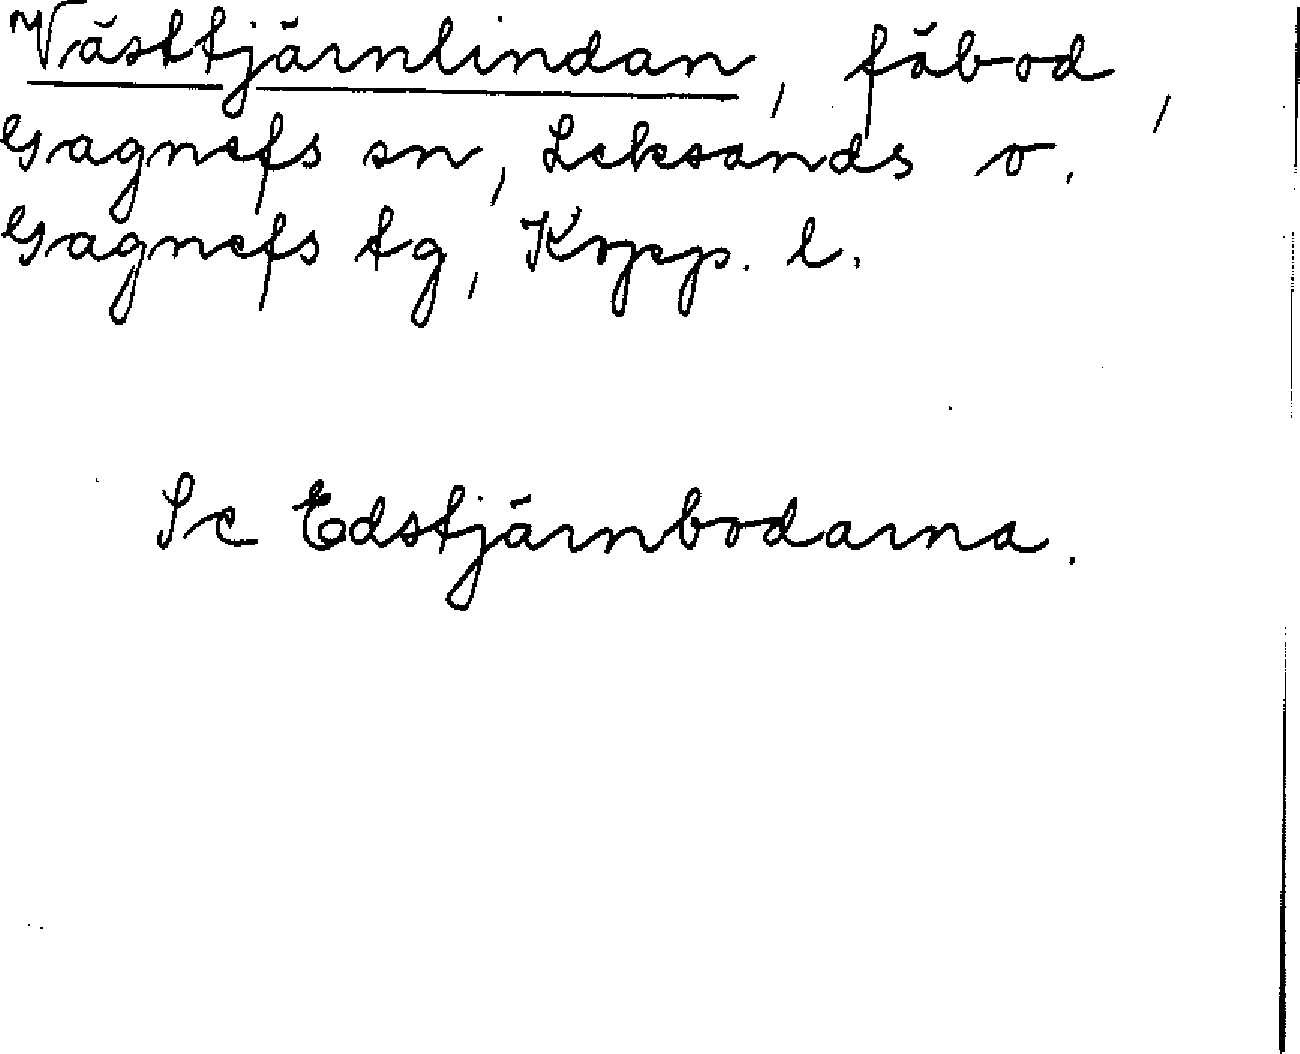 Västtjärnlindan, fäbod,
Gagnefs sn, Leksands o.
Gagnefs tg, Kopp. l.
Se Edstjärnbodarna.